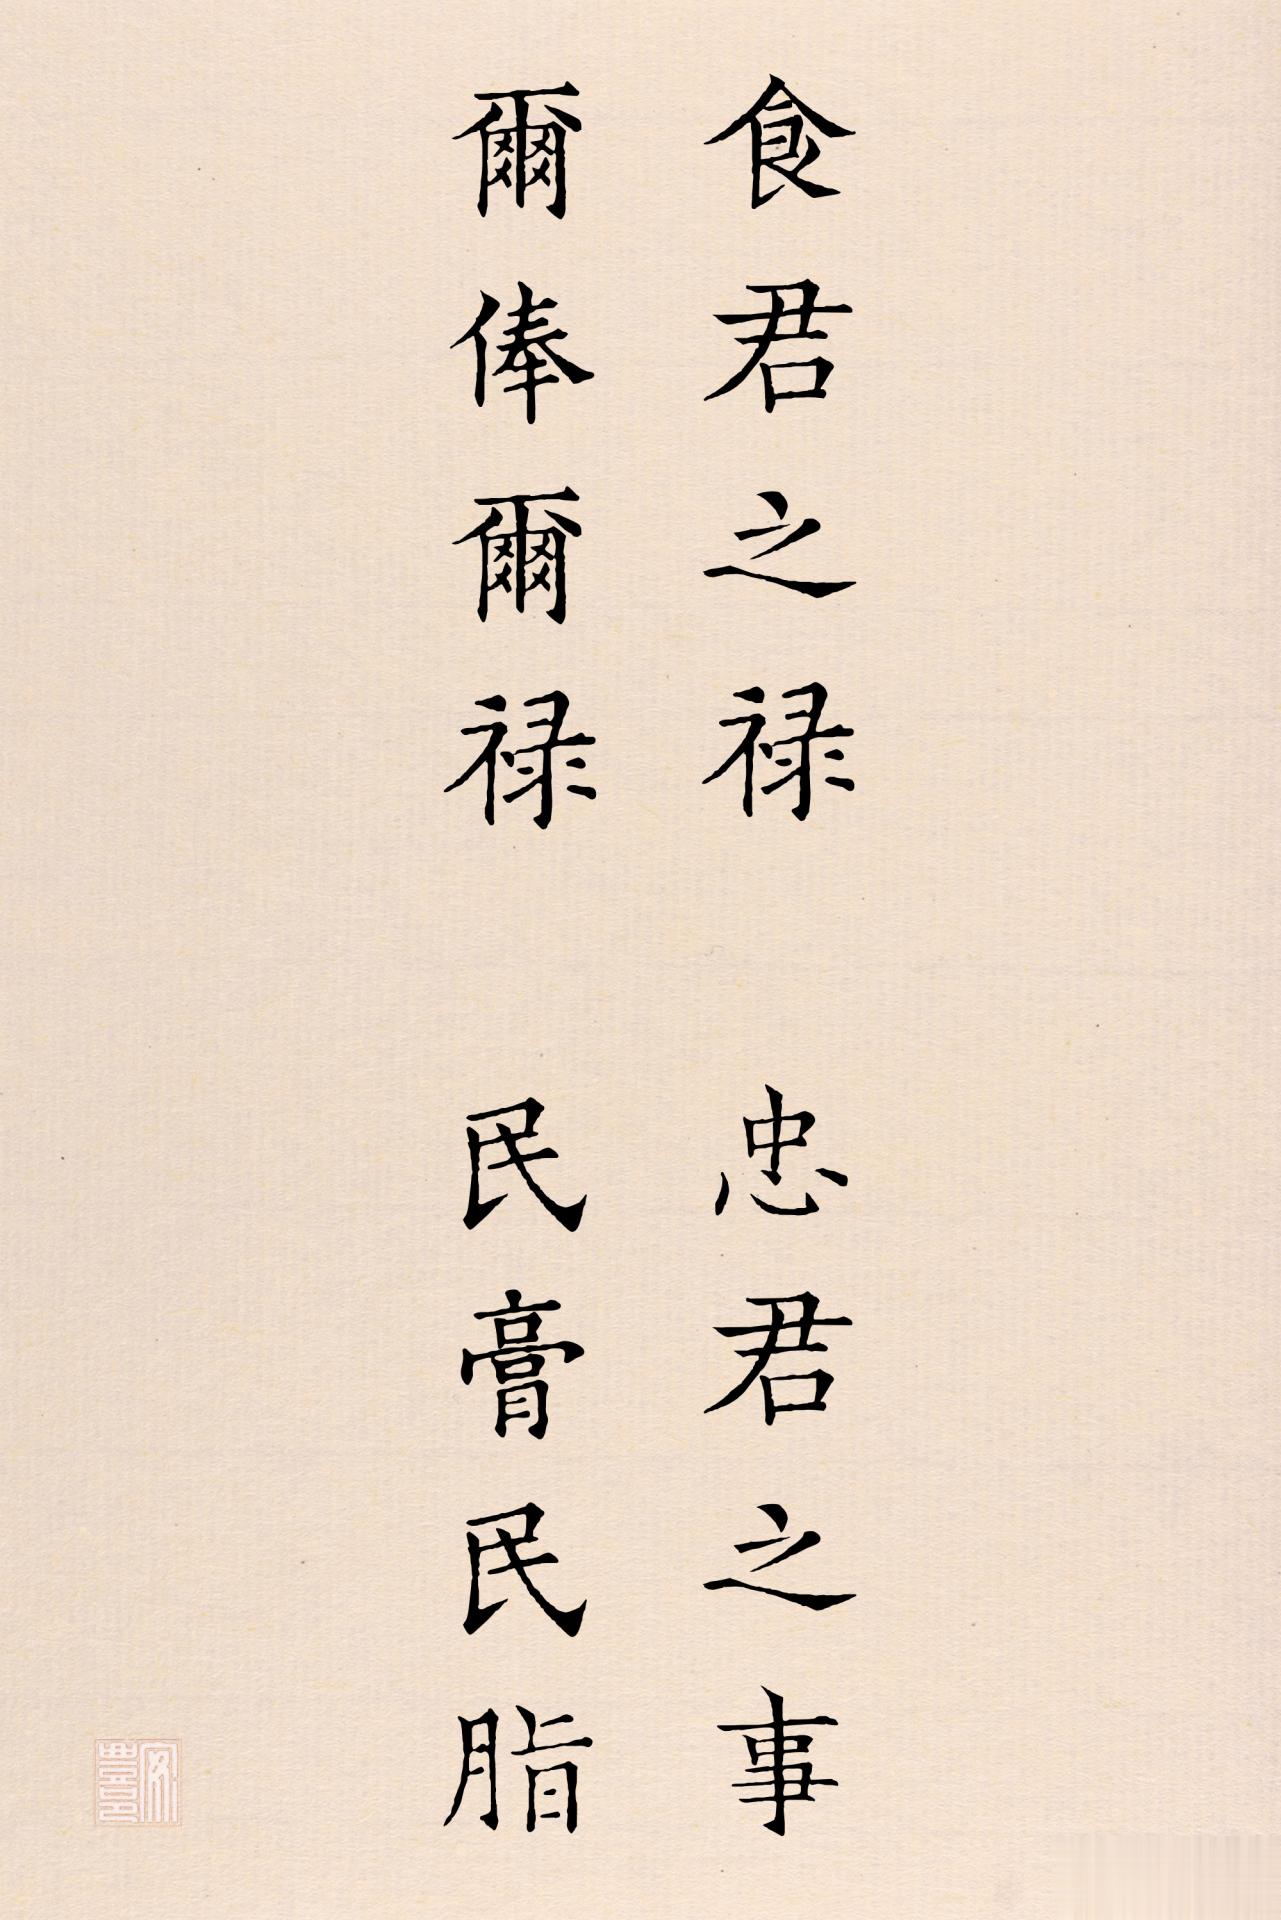 食君之禄 忠君之事
爾俸爾禄 民膏民脂